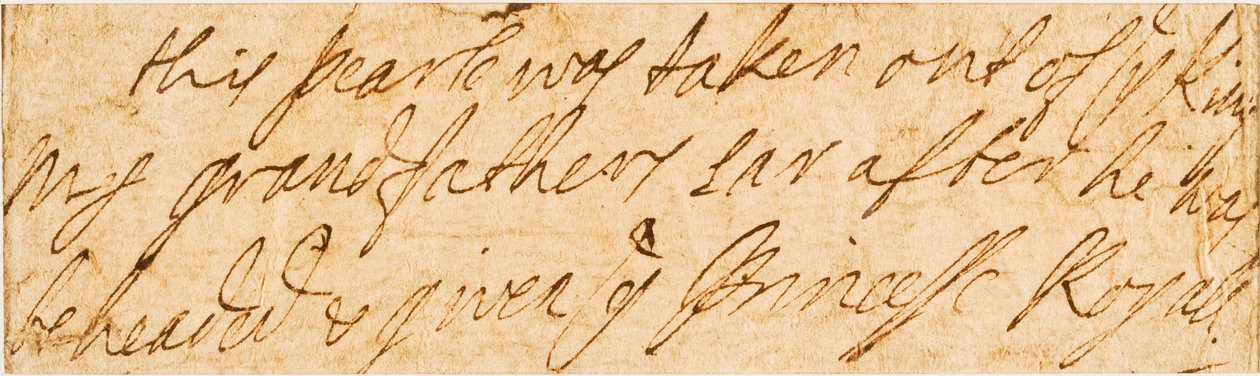 this pearle was taken out of yͤ King
my grandfathers ear after he was
beheaded & given yͤ Princess Royall